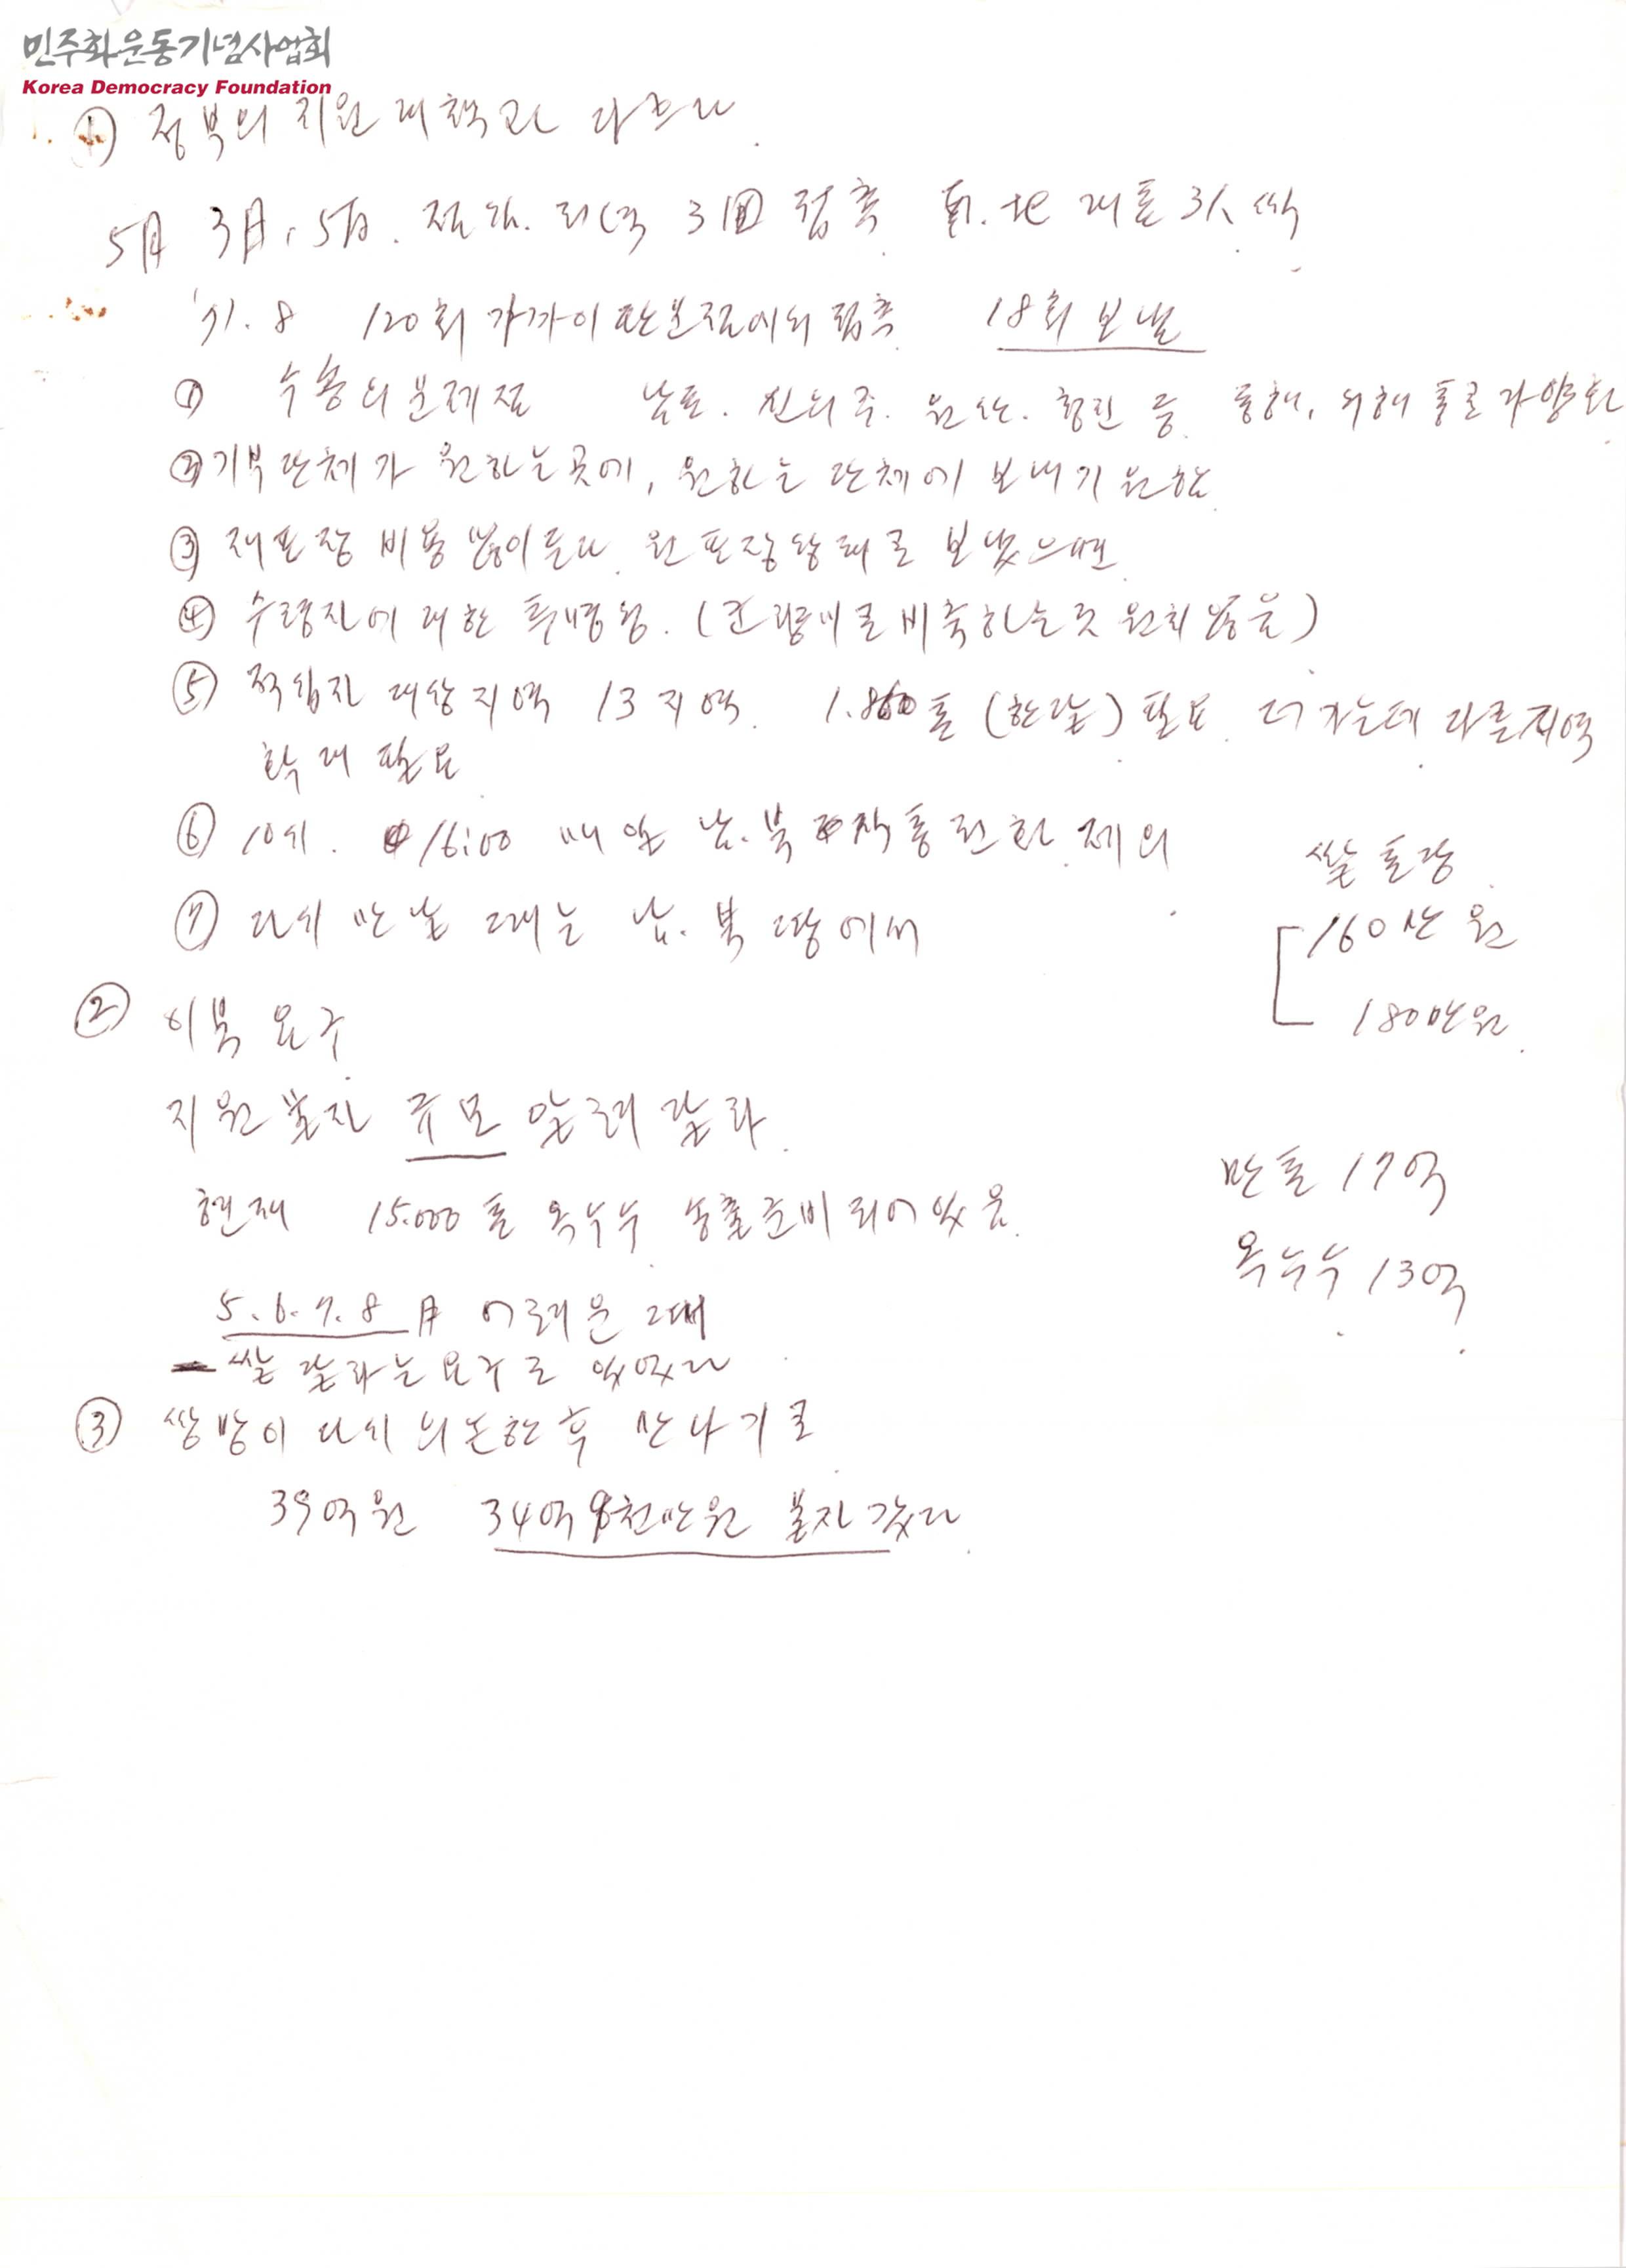 민주화운동기념사업회
Korea Democracy Foundation
① 정부의 지원대책과 다르다.
5月 3日, 5日. 3回 접촉. 南.北 대표 3人씩
'71. 8 120회 가까이 판문점에의 접촉 18회 보냄
① 수송의 문제점 남포. 신의주. 원산. 흥진 등. 동해, 서해 통로 다양화.
② 기부단체가 원하는 곳에, 원하는 단체에 보내기 원함.
③ 재포장 비용 많이 든다. 원포장상태로 보냈으면
④ 수령자에 대한 투명성. (군량미로 비축하는 것 원치 않음)
⑤ 적십자 대상지역 13지역. 1.860톤 (한달) 필요. 더 가는데 다른지역
확대 필요
⑥ 10시. 16:00 매일 남.북 직통전화 제의
⑦ 다시 만날 때는 남.북 땅에서
쌀 톤당
160만원
180만원.
② 이북 요구
지원 물자 규모 알려 달라.
현재 15.000톤 옥수수 송출준비 되어 있음.
만톤 17억
옥수수 13억
5.6.7.8月 어려운 때
쌀 달라는 요구도 있었다
③ 쌍방이 다시 의논한 후 만나기로
39억원 34억 8천만원 물자 갔다.